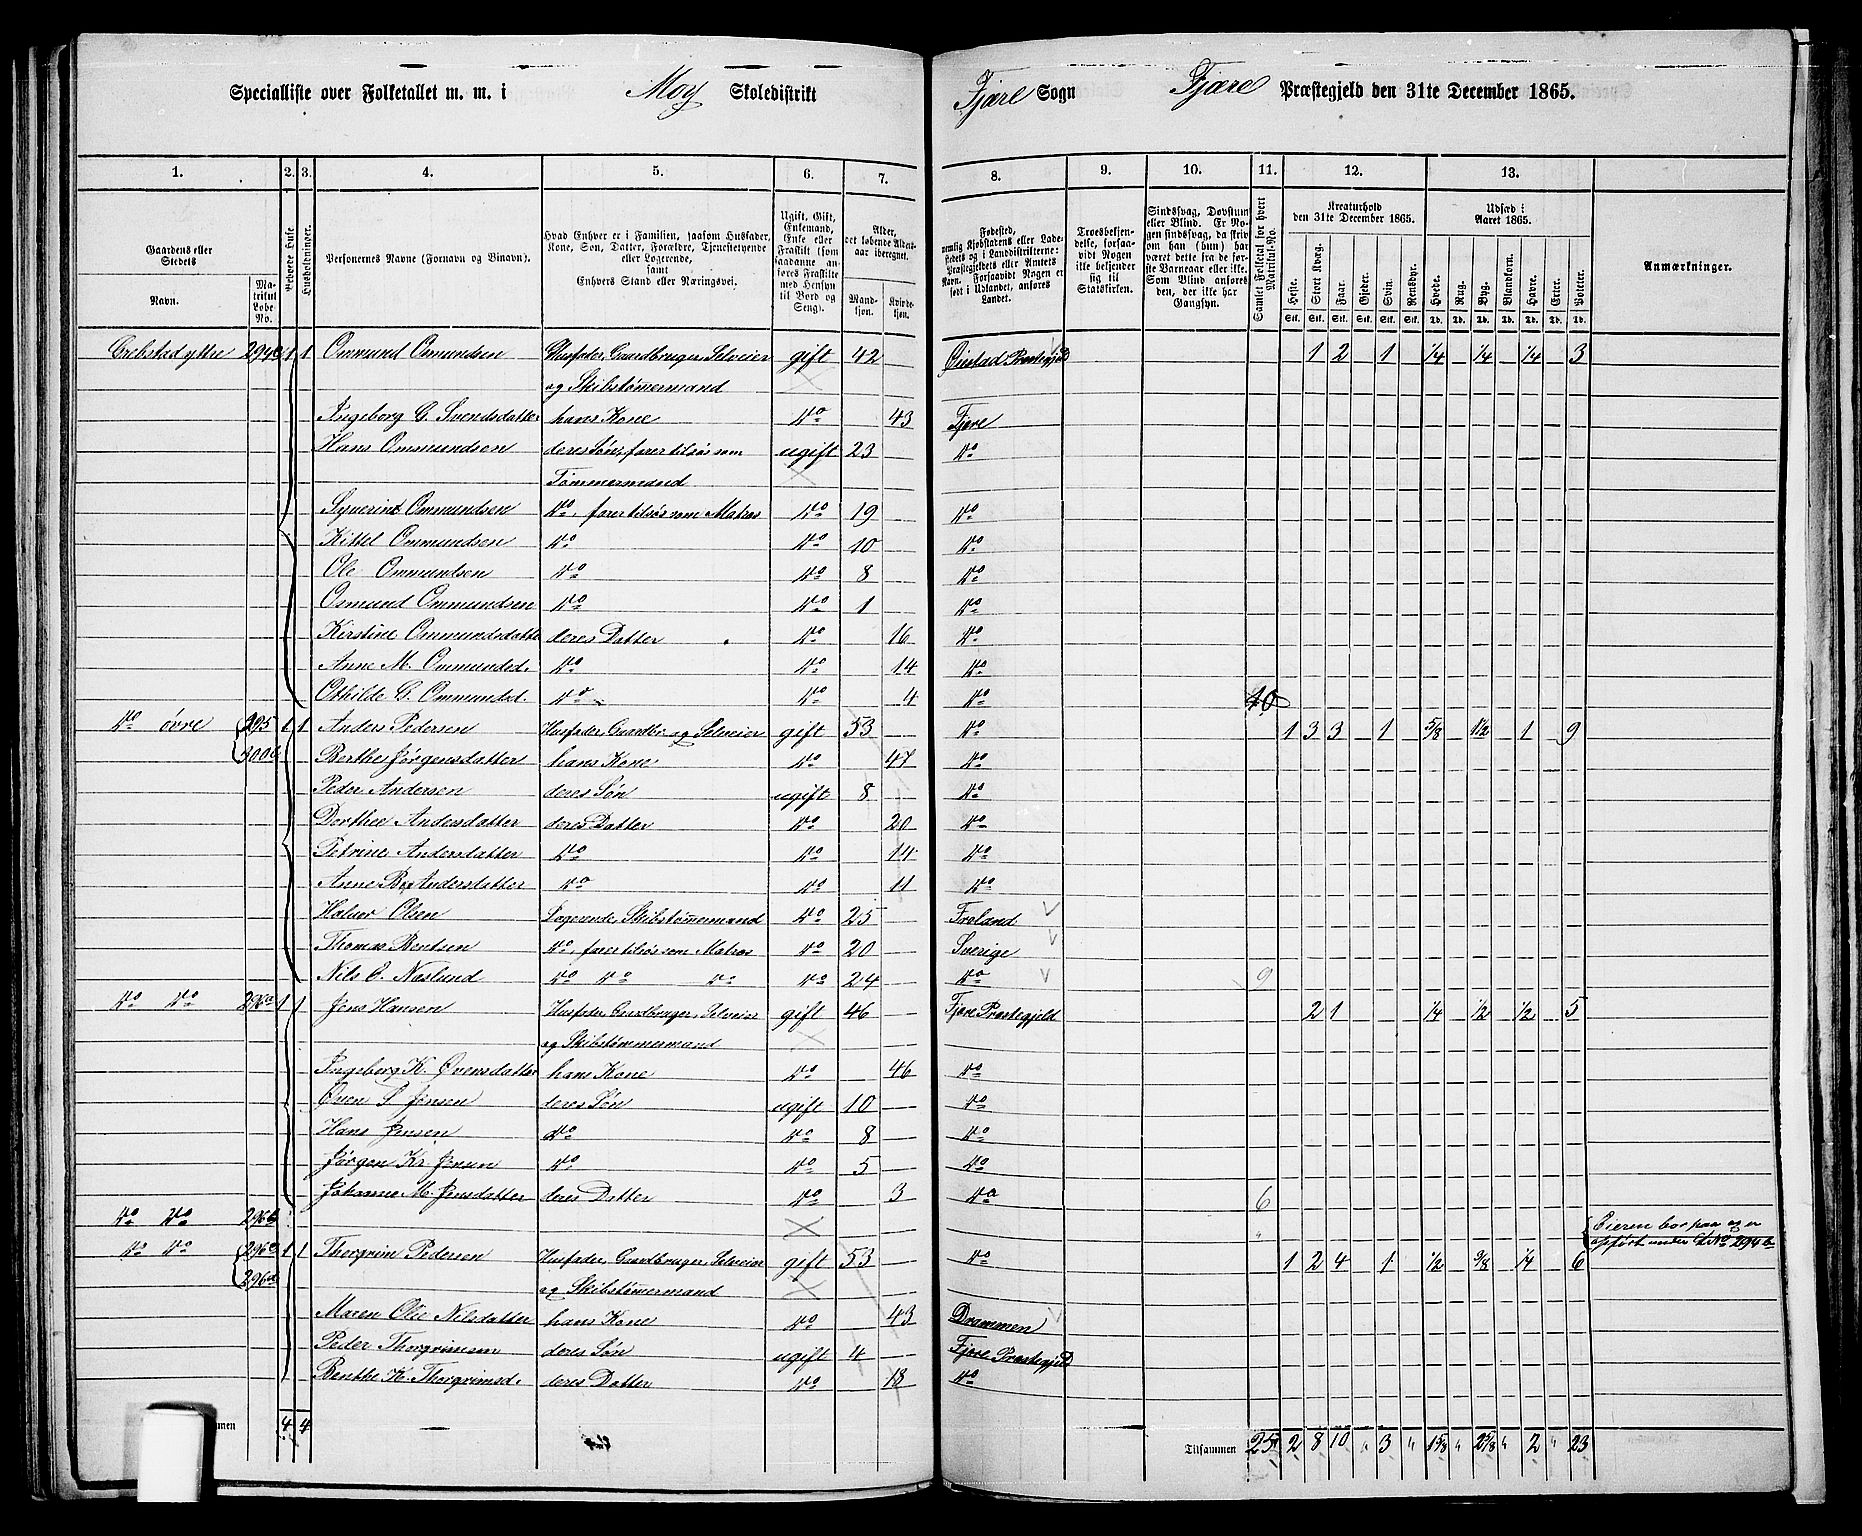 Specialliste over Folketallet m. m. i Moy Skoledistrikt Fjære Sogn Fjære Præstegjeld den 31te December 1865.
1. 2. 3. 4. 5. 6. 7. 8. 9. 10. 11. 12. 13.
Gaardens eller Stedets
Navn.
Matrikul Løbe-No.
Beboede Huse
Husholdninger.
Personernes Navne (Fornavn og Binavn).
Hvad Enhver er i Familien, saasom Husfader, Kone, Søn, Datter, Forældre, Tjenestetyende eller Logerende, samt Enhvers Stand eller Næringsvei.
Ugift, Gift, Enkemand, Enke eller Fraskilt (som saadanne anføres Fraskilte med Hensyn til Bord og Seng).
Alder, det løbende Aldersaar iberegnet.
Mandkjøn.
Kvindekjøn.
Fødested, nemlig Kjøbstadens eller Ladestedets og i Landdistrikterne: Præstegjeldets eller Amtets Navn. Forsaavidt Nogen er født i Udlandet, anføres Landet.
Troesbekjendelse, forsaavidt Nogen ikke bekjender sig til Statskirken.
Sindssvag, Døvstum eller Blind. Er Nogen sindssvag, da skrives om han (hun) har været dette fra de første Barneaar eller ikke. Som Blind anføres den, der ikke har Gangsyn.
Samlet Folketal for hvert Matrikul-No.
Kreaturhold den 31te December 1865.
Heste. Stort Kvæg. Faar. Gjeder. Svin. Rensdyr.
Udsæd i Aaret 1865.
Hvede. Rug. Byg. Blandkorn. Havre. Erter. Poteter.
Anmærkninger.
Grebstad yttre 294 1 1 Ommund Omundsen Husfader, Gaardbruger, Selveier gift 42 Øiestad Præstegjeld 1 2 1 1/4 1/4 1/4 3
og Skibstømermand
Ingeborg C. Svendsdatter hans Kone do 43 Fjære
Hans Ommundsen deres Søn, farer tilsøs som ugift 23 do
Tømmermand
Syverin Ommundsen do, farer tilsøs som Matros do 19 do
Kittel Ommundsen do do 10 do
Ole Ommundsen do do 8 do
Osmund Ommundsen do do 1 do
Kirstine Ommundsdatte deres Datter do 16 do
Anne M. Ommundsd. do do 14 do
Othilde C. Ommundsd. do do 4 do 10
do øvre 295 1 1 Anders Pedersen Husfader, Gaardbr. og Selveier gift 53 do 1 3 3 1 5/8 1 1/2 1 9
300 Berthe Jørgensdatter hans Kone do 47 do
Peder Andersen deres Søn ugift 8 do
Dorthee Andersdatter deres Datter do 20 do
Petrine Andersdatter do do 14 do
Anne B. Andersdatter do do 11 do
Halvor Olsen Logerende, Skibstømmermand do 25 Froland
Thomas Bentsen do, farer tilsøs som Matros do 20 Sverige
Nils E. Naslund do do do do 24 do 9
do do 296a 1 1 Jens Hansen Husfader, Grdbruger, Selveier gift 46 Fjære Præstegjeld 2 1 1/4 1/2 1/2 5
og Skibstømmermand
Ingeborg K. Øvensdatter hans Kone do 46 do
Øven S Jensen deres Søn ugift 10 do
Hans Jensen do do 8 do
Jørgen Kr Jensen do do 5 do
Johanne M. Jensdatter deres Datter do 3 do 6
do do 296b " Eieren bor paa og er
opført under L No 294b
do do 296c 1 1 Thorgrim Pedersen Husfader, Grdbruger, Selveier gift 53 do 1 2 4 1 1/2 3/8 1/4 6
296d og Skibstømmermand
Maren Olie Nilsdatter hans Kone do 43 Drammen
Peder Thorgrimsen deres Søn ugift 4 Fjære Præstegjeld
Benthe K. Thorgrimsd. deres Datter do 18 do
4 4 Tilsammen 25 2 8 10 " 3 " 1 5/8 " 2 5/8 " 2 " 23